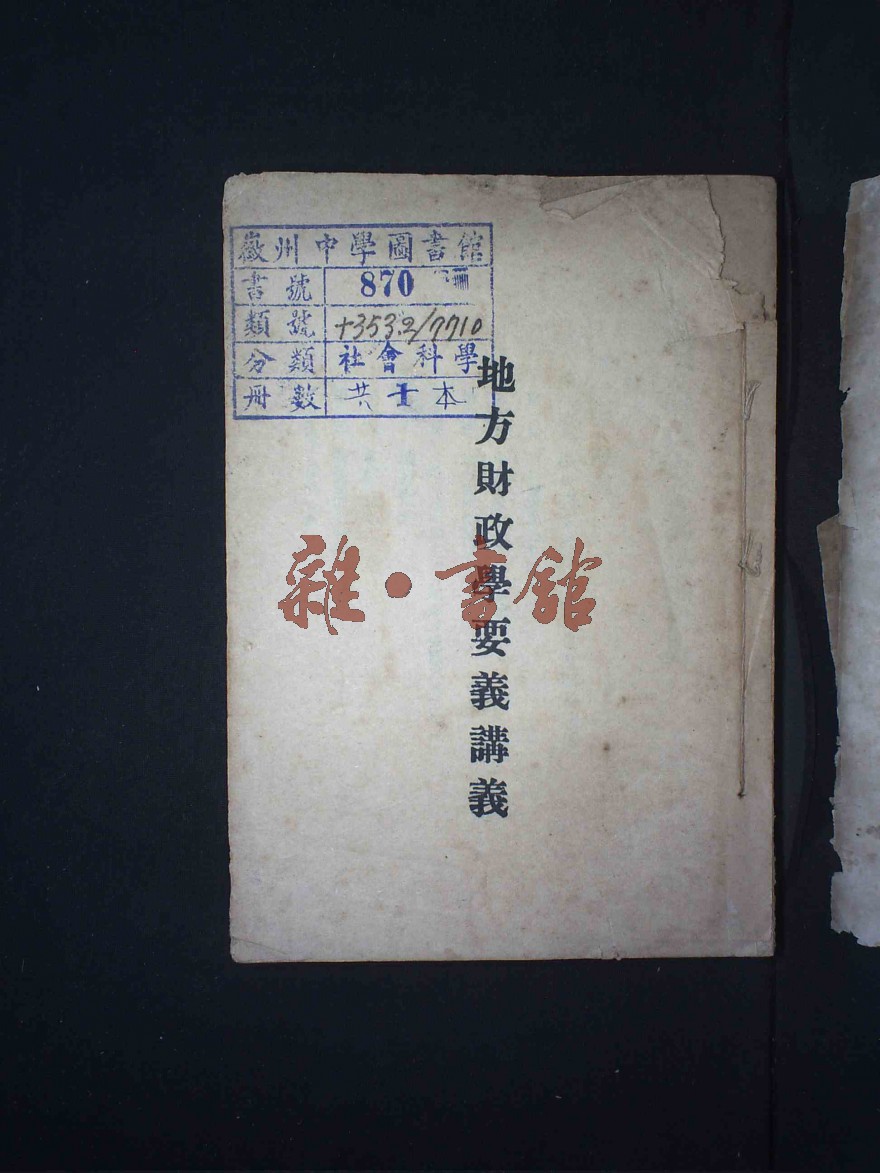 徽州中學圖書館
書號 870
類號 +353.2/7710
分類 社會科學
冊數 共 本
地方財政學要義講義
雜·書館